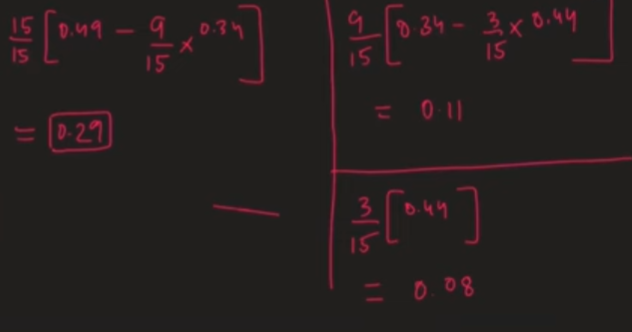 15/15 [0.49 - 9/15 × 0.34]
= 0.29
9/15 [0.34 - 3/15 × 0.44]
= 0.11
3/15 [0.44]
= 0.08